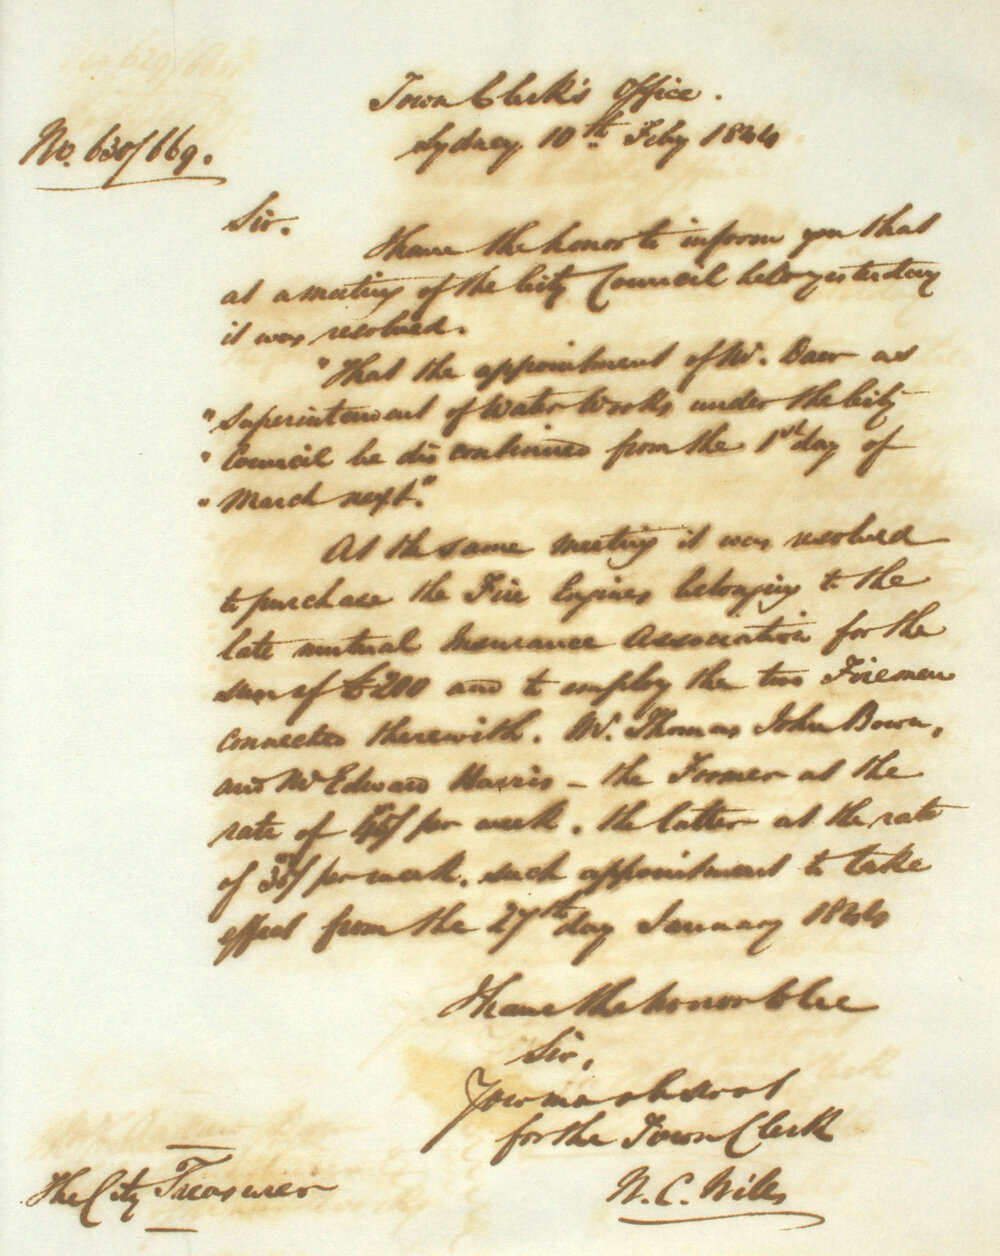 Town Clerk's Office.
Sydney 10th Feby 1844
No. 630/669.
Sir.
I have the honor to inform you that
at a meeting of the City Council held yesterday
it was resolved.
"That the appointment of Mr. Daer as
"Superintendent of Water Works under the City
"Council be discontinued from the 1st day of
"March next."
At the same meeting it was resolved
to purchase the Fire Engines belonging to the
late mutual Insurance Association for the
sum of £200 and to employ the two Firemen
connected therewith. Mr. Thomas John Bown,
and Mr Edward Harris – the Former at the
rate of per week. the latter at the rate
of per week. such appointment to take
effect from the 27th day January 1844
I have the honor to be
Sir,
Your most obt servt
for the Town Clerk
W. C. Wills
The City Treasurer